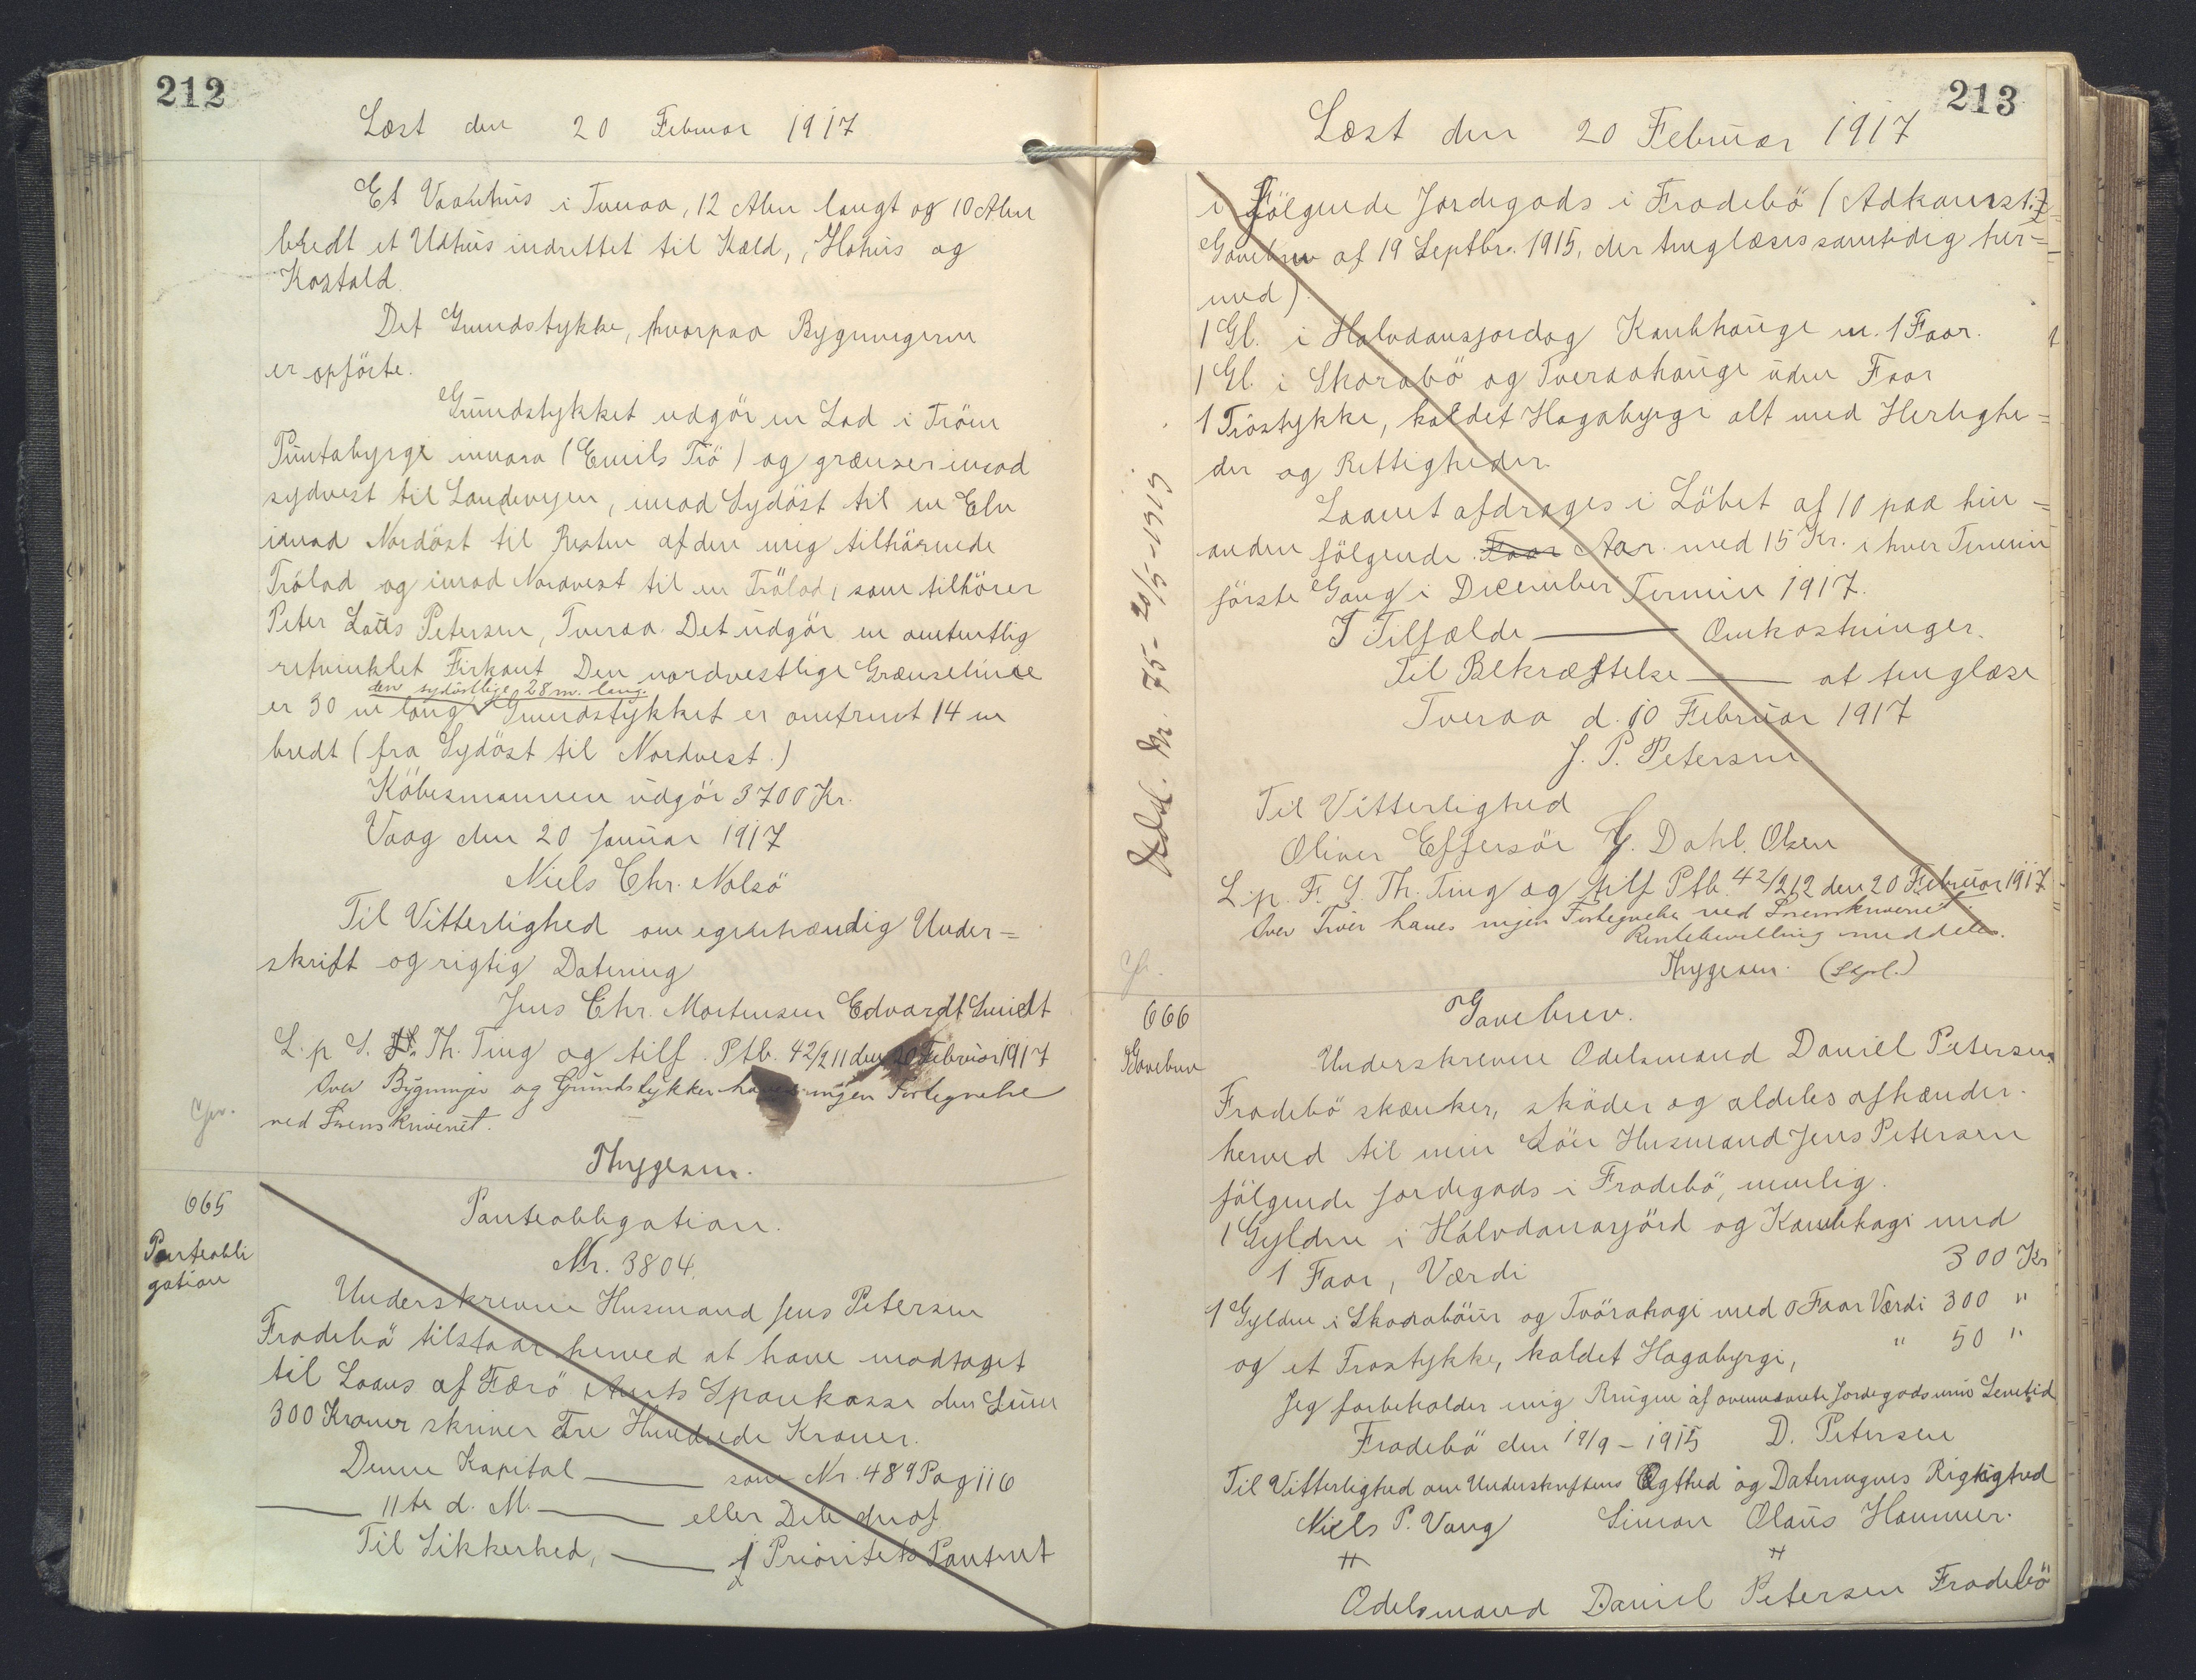 212
Læst den 20 Februar 1917
Et Vaanhus i Tveraa, 12 Alen langt og 10 Alen
bredt et Udhus indrettet til Kæld, Høhus og
Kostald.
Det Grundstykke, hvorpaa Bygningerne
er opførte.
Grundstykket udgør en Lad i Trøen
Puntabyrge innara (Emils Trø) og grænser imod
sydvest til Landevejen, imod Sydöst til en Elv
imod Nordöst til Resten af den mig tilhørende
Trölad og imod Nordvest til en Trölad, som tilhörer
Peter Louis Petersen, Tveraa. Det udgör en omtentlig
retvinklet Firkant. Den nordvestlige Grænselinie
den sydöstlige 28 m. lang.
er 30 m lang. Grundstykket er omtrent 14 m
bredt (fra Sydöst til Nordvest.)
Köbesummen udgör 3700 Kr.
Vaag den 20 Januar 1917
Niels Chr. Nolsö
Til Vitterlighed om egenhændig Under=
skrift og rigtig Datering
Jens Chr. Mortensen Edvardt Smidt
L. p. S. Th. Ting og tilf. Ptb. 42/211 den 20 Februar 1917
Over Bygninger og Grundstykker haves ingen Fortegnelse
ved Sorenskriveriet.
Thygesen.
665
Panteobli
gation
Panteobligation.
Nr. 3804.
Underskrevne Husmand Jens Petersen
Frodebö tilstaar herved at have modtaget
til Laans af Færö Amts Sparekasse den Sum
300 Kroner skriver Tre Hundrede Kroner.
Denne Kapital ——— som Nr. 489 Pag 116
——— 11te d. M. ——— eller Dele deraf
Til Sikkerhed, ——— 1 Prioritets Panteret
213
Læst den 20 Februar 1917
i følgende Jordegods i Frodebö (Adkomst:
Gavebrev af 19 Septbr. 1915, der tinglæses samtidig her=
med).
1 Gl. i Halvdansjordog Kambhauge m. 1 Faar.
1 Gl. i Skorabö og Tveraahauge uden Faar
1 Tröstykke, kaldet Hagabyrge alt med Herlighe=
der og Rettigheder.
Laanet afdrages i Löbet af 10 paa hin=
anden fölgende Faar Aar med 15 Kr. i hver Termin
förste Gang i December Termin 1917.
I Tilfælde ——— Omkostninger.
Til Bekræftelse ——— at tinglæse
Tveraa d. 10 Februar 1917
J. P. Petersen
Til Vitterlighed
Oliver Effersöe G. Dahl. Olsen
L. p. F. S. Th. Ting og tilf Ptb. 42/212 den 20 Februar 1917
Over Tröer haves ingen Fortegnelse ved Sorenskriveriet.
Rentebevilling meddeles.
Thygesen. (Stpl.)
Udsl. Kr. 75 - 20/5-1919
666
Gavebrev
Gavebrev.
Underskrevne Odelsmand Daniel Petersen
Frodebö skænker, sköder og aldeles afhænder
herved til min Sön Husmand Jens Petersen
fölgende Jordegods i Frodebö, nemlig.
1 Gylden i Hálvdanarjörd og Kambhagi med
1 Faar, Værdi 300 Kr
1 Gylden i Skorabönir og Tvörahagi med 0 Faar Værdi 300 "
og et Trøstykke, kaldet Hagabyrgi, " 50 "
Jeg forbeholder mig Brugen af ovennævnte Jordegods min Levetid
Frodebö den 19/9 - 1915 D. Petersen
Til Vitterlighed om Underskriftens Ægthed og Dateringens Rigtighed
Niels P. Vang Simon Olaus Hammer.
Odelsmand Daniel Petersen Frodebö